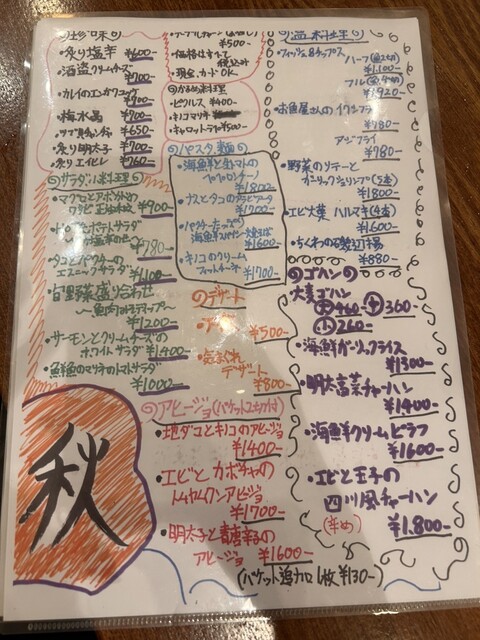 ・炙り塩辛 ¥600-
・海盗クリームチーズ
¥700-
・カレイのエンガワユッケ
¥700-
・梅水晶 ¥700-
¥650-
・炙り明太子 ¥700-
・炙りエイヒレ ¥760-
¥500-
・価格はすべて
税込み
・現金、カードOK
◎かるめ料理
・ピクルス ¥400-
・キノコマリネ
・キャロットラペ ¥500-
◎パスタ・麺
・海鮮と生トマトの
ペペロンチーノ
¥1800-
・ナスとタコのアラビアータ
¥1700-
¥1600-
・キノコのクリーム
フィットチーネ
¥1700-
◎サラダ・小料理
・マグロとアボカドの
ワサビ正油和え ¥900-
¥780-
・タコとパクチーの
エスニックサラダ
¥1,100-
・旨野菜盛り合わせ
¥1200-
・サーモンとクリームチーズの
ホワイトサラダ ¥1400-
・鮮魚のマリネのトマトサラダ
¥1000-
◎デザート
・アイス
¥500-
・気まぐれ
デザート
¥800-
◎温料理
・フィッシュ&チップス
ハーフ
¥1,100-
フル
¥1,920-
・お魚屋さんのイワシフライ
¥780-
アジフライ
¥780-
・野菜のソテーと
ガーリックシュリンプ(5本)
¥1800-
・エビ大葉ハルマキ(4本)
¥1600-
・ちくわの磯辺揚
¥880-
◎ゴハン◎
・大麦ゴハン
大460- 中360-
小260-
・海鮮ガーリックライス
¥1300-
・明太高菜チャーハン
¥1400-
・海鮮クリームピラフ
¥1600-
・エビと玉子の
四川風チャーハン
(辛め) ¥1.800-
◎アヒージョ(バケット2切付)
・地ダコとキノコのアヒージョ
¥1400-
・エビとカボチャの
トムヤムクンアヒージョ
¥1700-
・明太子と青唐辛子の
アヒージョ ¥1600-
(バケット追加1枚¥130-)
秋